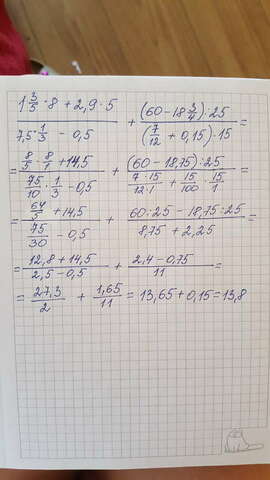 (1 3/5 · 8 + 2,9 · 5) / (7,5 · 1/3 − 0,5) + ((60 − 18 3/4) : 25) / ((7/12 + 0,15) · 15) =
= (8/5 · 8/1 + 14,5) / (75/10 · 1/3 − 0,5) + ((60 − 18,75) : 25) / (7·15/12·1 + 15/100 · 15/1) =
= (64/5 + 14,5) / (75/30 − 0,5) + (60 : 25 − 18,75 : 25) / (8,75 + 2,25) =
= (12,8 + 14,5) / (2,5 − 0,5) + (2,4 − 0,75) / 11 =
= 27,3/2 + 1,65/11 = 13,65 + 0,15 = 13,8